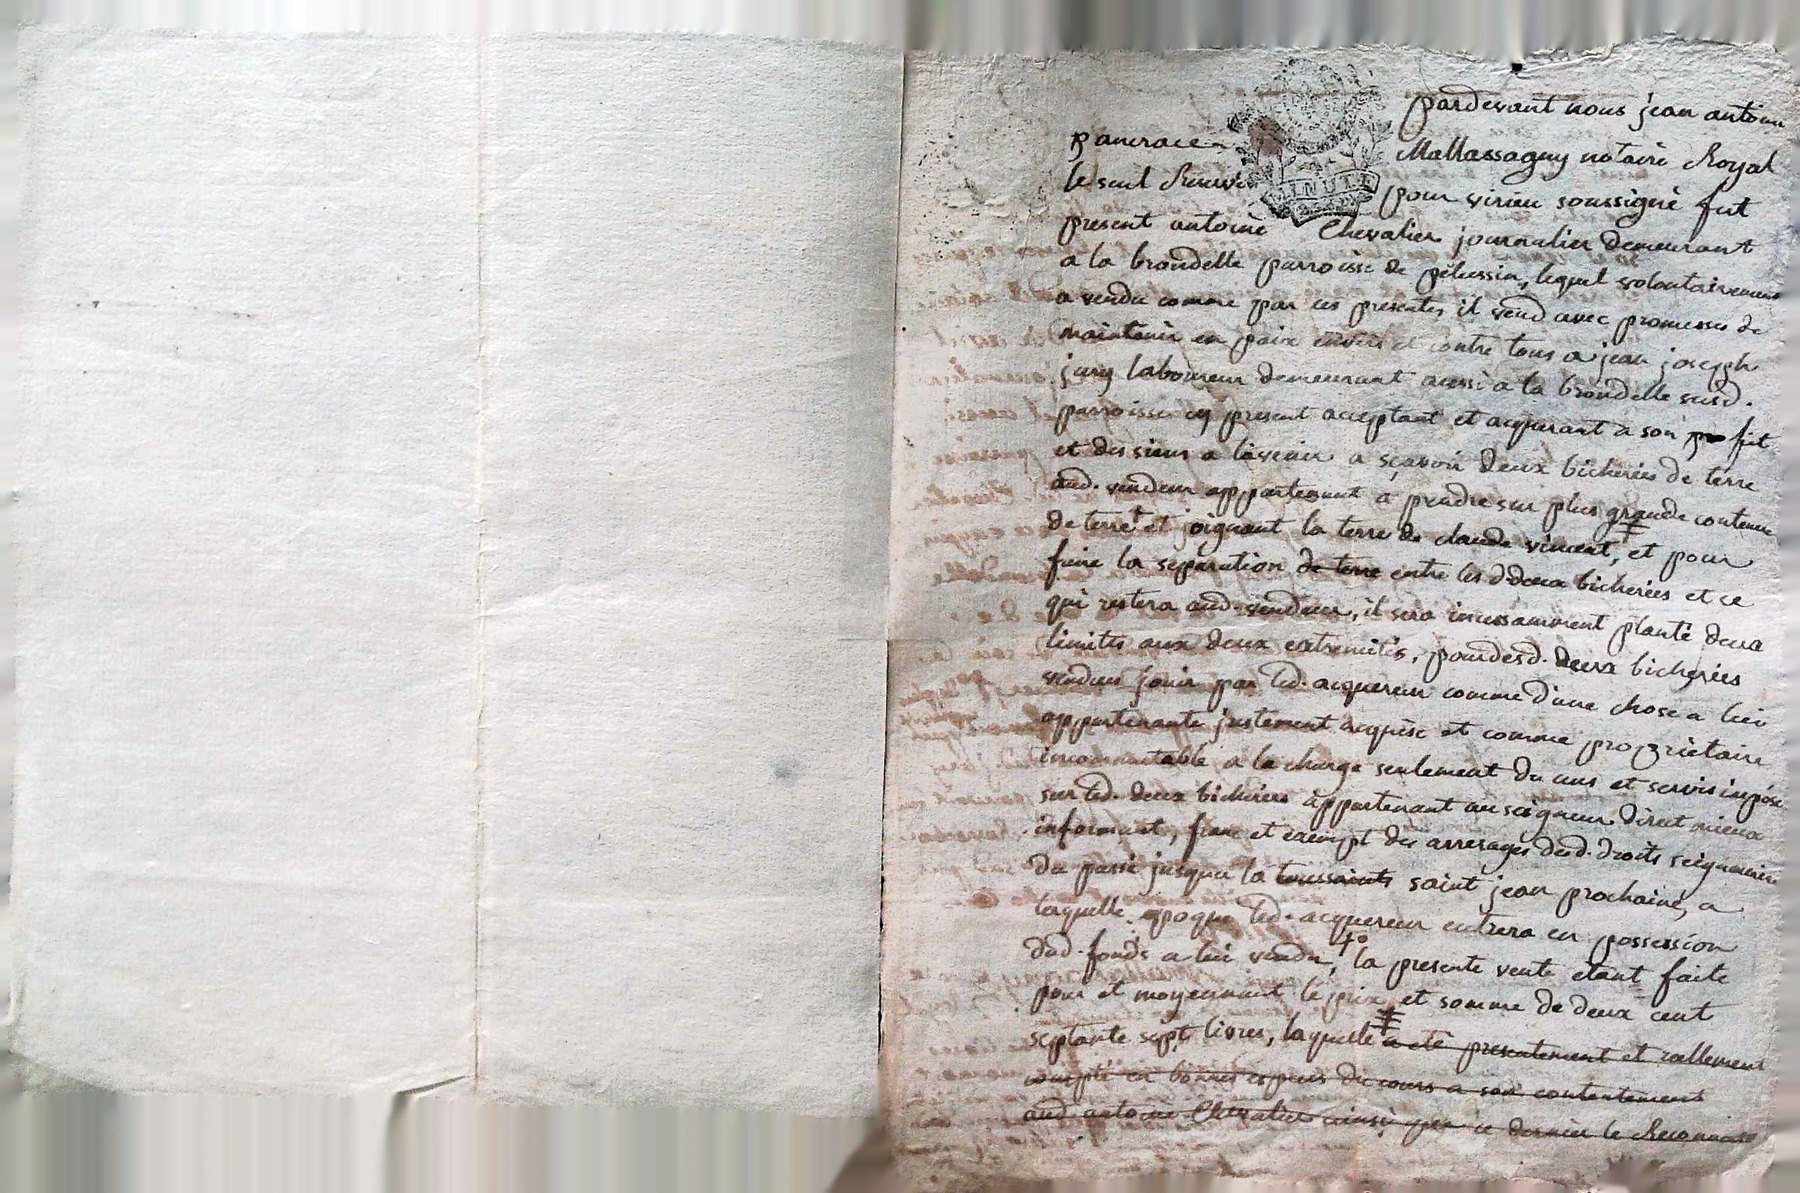 pardevant nous jean antoine
pancrace Mallassagny notaire Royal
le seul Reservé pour virieu soussigné fut
MINUTE
present antoine Chevalier journalier demeurant
a la brondelle parroisse de pelussin, lequel volontairement
a vendu comme par ces presentes il vend avec promesses de
maintenir en paix envers et contre tous a jean joseph
jury laboureur demeurant aussi a la brondelle susd.
parroisse cy present acceptant et acquerant a son profit
et des siens a l'avenir a sçavoir deux bicherées de terre
aud. vendeur appartenant a prendre sur plus grande contenue
de terre et joignant la terre de claude vincent, et pour
faire la séparation de terre entre les d. deux bicherées et ce
qui restera aud. vendeur, il sera incessamment planté deux
limites aux deux extremités, pour desd. deux bicherées
vendues jouir par led. acquereur comme d'une chose a lui
appartenante justement acquise et comme proprietaire
incommutable a la charge seulement du cens et servis imposé
sur led. deux bicherées appartenant au seigneur direct mieux
informant, franc et exempt des arrerages desd. droits seigneuriers
du passé jusques la toussaints saint jean prochaine, a
laquelle epoque led. acquereur entrera en possession
dud. fonds a lui vendu, la presente vente etant faite
pour et moyennant le prix et somme de deux cent
septante sept livres, laquelle a eté presentement et reellement
compté en bonnes especes du cours a son contentement
aud. antoine Chevalier ainsi que ce dernier le Reconnait